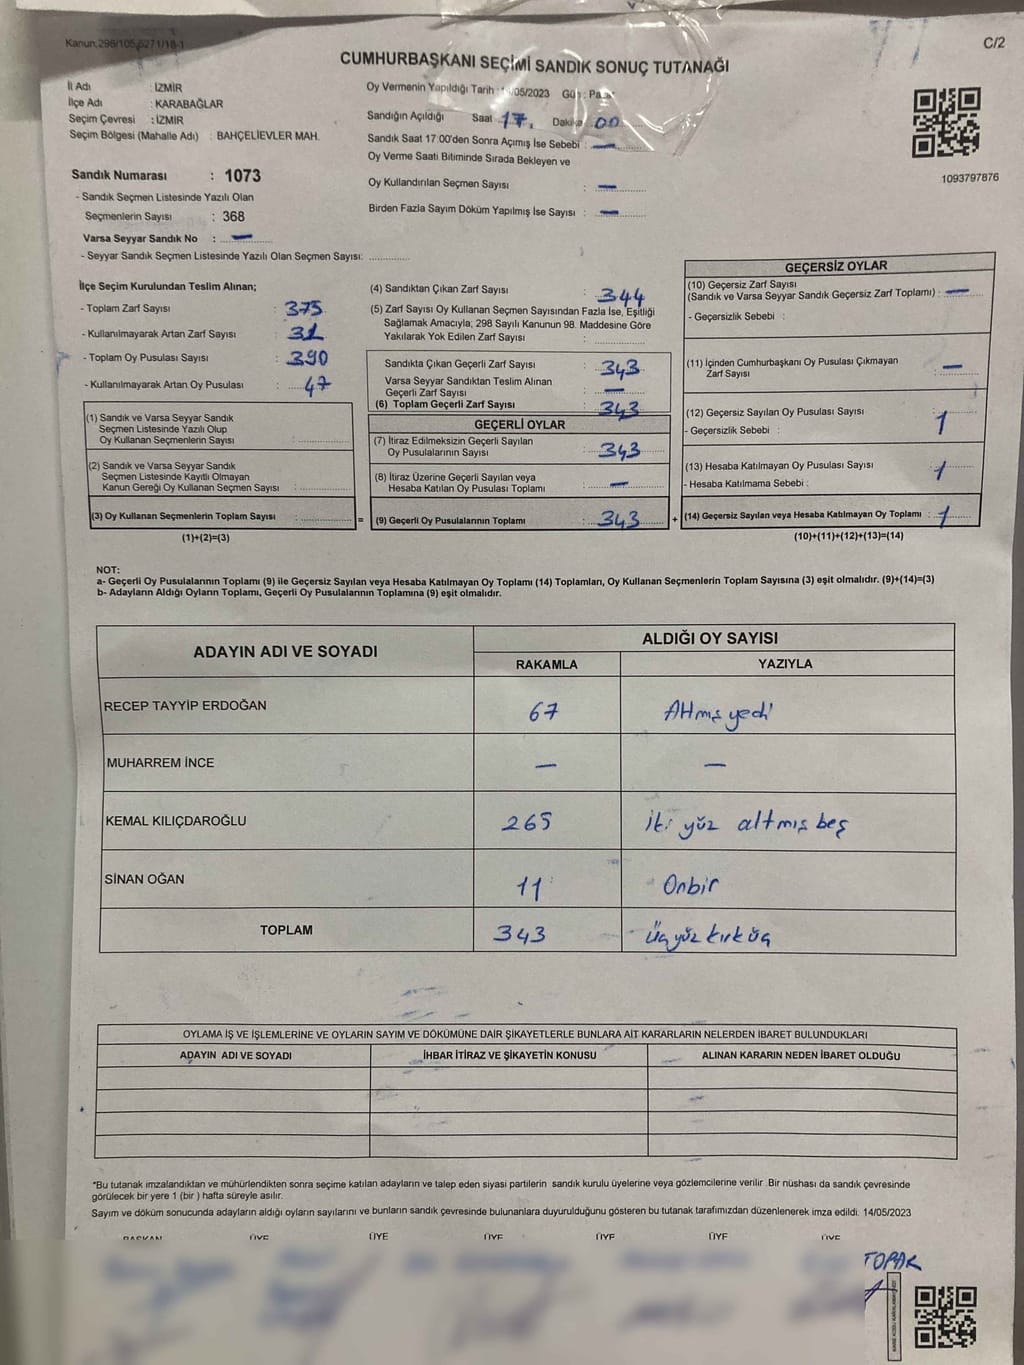 Kanun.298/105,6271/18-1
C/2
CUMHURBAŞKANI SEÇİMİ SANDIK SONUÇ TUTANAĞI
İl Adı : İZMİR
İlçe Adı : KARABAĞLAR
Seçim Çevresi : İZMİR
Seçim Bölgesi (Mahalle Adı) : BAHÇELİEVLER MAH.
Sandık Numarası : 1073
- Sandık Seçmen Listesinde Yazılı Olan
Seçmenlerin Sayısı : 368
Varsa Seyyar Sandık No : —
- Seyyar Sandık Seçmen Listesinde Yazılı Olan Seçmen Sayısı: ............
Oy Vermenin Yapıldığı Tarih : /05/2023 Gün :
Sandığın Açıldığı Saat 17. Dakika 00
Sandık Saat 17:00'den Sonra Açımış İse Sebebi : —
Oy Verme Saati Bitiminde Sırada Bekleyen ve
Oy Kullandırılan Seçmen Sayısı : —
Birden Fazla Sayım Döküm Yapılmış İse Sayısı : —
1093797876
İlçe Seçim Kurulundan Teslim Alınan;
- Toplam Zarf Sayısı : 375
- Kullanılmayarak Artan Zarf Sayısı : 31
- Toplam Oy Pusulası Sayısı : 390
- Kullanılmayarak Artan Oy Pusulası : 47
(1) Sandık ve Varsa Seyyar Sandık
Seçmen Listesinde Yazılı Olup
Oy Kullanan Seçmenlerin Sayısı :
(2) Sandık ve Varsa Seyyar Sandık
Seçmen Listesinde Kayıtlı Olmayan
Kanun Gereği Oy Kullanan Seçmen Sayısı :
(3) Oy Kullanan Seçmenlerin Toplam Sayısı :
(1)+(2)=(3)
(4) Sandıktan Çıkan Zarf Sayısı : 344
(5) Zarf Sayısı Oy Kullanan Seçmen Sayısından Fazla İse, Eşitliği
Sağlamak Amacıyla; 298 Sayılı Kanunun 98. Maddesine Göre
Yakılarak Yok Edilen Zarf Sayısı :
Sandıkta Çıkan Geçerli Zarf Sayısı : 343
Varsa Seyyar Sandıktan Teslim Alınan
Geçerli Zarf Sayısı : —
(6) Toplam Geçerli Zarf Sayısı : 343
GEÇERLİ OYLAR
(7) İtiraz Edilmeksizin Geçerli Sayılan
Oy Pusulalarının Sayısı : 343
(8) İtiraz Üzerine Geçerli Sayılan veya
Hesaba Katılan Oy Pusulası Toplamı : —
= (9) Geçerli Oy Pusulalarının Toplamı : 343
GEÇERSİZ OYLAR
(10) Geçersiz Zarf Sayısı
(Sandık ve Varsa Seyyar Sandık Geçersiz Zarf Toplamı) : —
- Geçersizlik Sebebi :
(11) İçinden Cumhurbaşkanı Oy Pusulası Çıkmayan
Zarf Sayısı : —
(12) Geçersiz Sayılan Oy Pusulası Sayısı : 1
- Geçersizlik Sebebi :
(13) Hesaba Katılmayan Oy Pusulası Sayısı : 1
- Hesaba Katılmama Sebebi :
+ (14) Geçersiz Sayılan veya Hesaba Katılmayan Oy Toplamı : 1
(10)+(11)+(12)+(13)=(14)
NOT:
a- Geçerli Oy Pusulalarının Toplamı (9) ile Geçersiz Sayılan veya Hesaba Katılmayan Oy Toplamı (14) Toplamları, Oy Kullanan Seçmenlerin Toplam Sayısına (3) eşit olmalıdır. (9)+(14)=(3)
b- Adayların Aldığı Oyların Toplamı, Geçerli Oy Pusulalarının Toplamına (9) eşit olmalıdır.
ADAYIN ADI VE SOYADI
ALDIĞI OY SAYISI
RAKAMLA YAZIYLA
RECEP TAYYİP ERDOĞAN 67 Altmış yedi
MUHARREM İNCE — —
KEMAL KILIÇDAROĞLU 265 İki yüz altmış beş
SİNAN OĞAN 11 Onbir
TOPLAM 343 Üçyüz kırk üç
OYLAMA İŞ VE İŞLEMLERİNE VE OYLARIN SAYIM VE DÖKÜMÜNE DAİR ŞİKAYETLERLE BUNLARA AİT KARARLARIN NELERDEN İBARET BULUNDUKLARI
ADAYIN ADI VE SOYADI İHBAR İTİRAZ VE ŞİKAYETİN KONUSU ALINAN KARARIN NEDEN İBARET OLDUĞU
*Bu tutanak imzalandıktan ve mühürlendikten sonra seçime katılan adayların ve talep eden siyasi partilerin sandık kurulu üyelerine veya gözlemcilerine verilir. Bir nüshası da sandık çevresinde
görülecek bir yere 1 (bir ) hafta süreyle asılır.
Sayım ve döküm sonucunda adayların aldığı oyların sayılarını ve bunların sandık çevresinde bulunanlara duyurulduğunu gösteren bu tutanak tarafımızdan düzenlenerek imza edildi. 14/05/2023
BAŞKAN ÜYE ÜYE ÜYE ÜYE ÜYE ÜYE
TOPAK